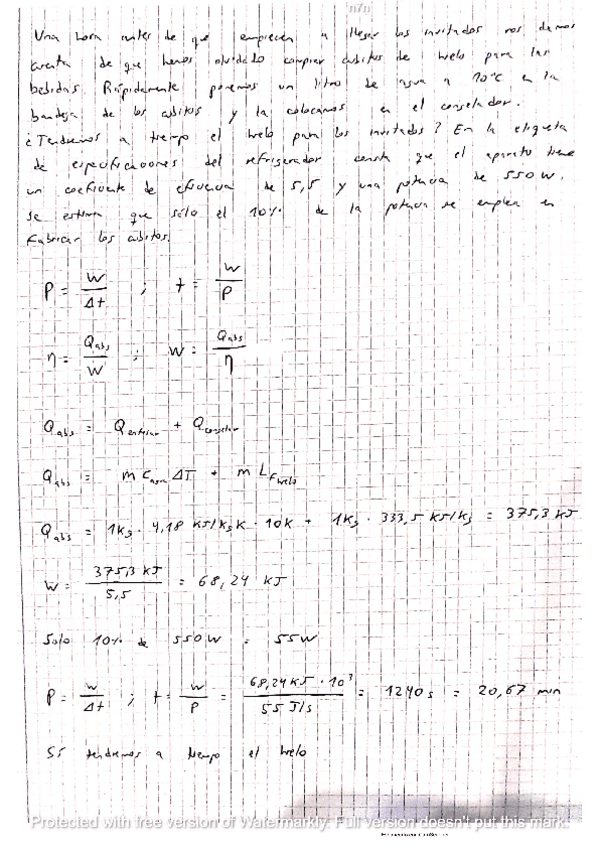 Una hora antes de que empiecen a llegar los invitados nos damos
cuenta de que hemos olvidado comprar cubitos de hielo para las
bebidas. Rápidamente ponemos un litro de agua a 10°C en la
bandeja de los cubitos y la colocamos en el congelador.
¿Tendremos a tiempo el hielo para los invitados? En la etiqueta
de especificaciones del refrigerador consta que el aparato tiene
un coeficiente de eficiencia de 5,5 y una potencia de 550 W.
Se estima que sólo el 10% de la potencia se emplea en
fabricar los cubitos.
P = W/Δt ; t = W/P
η = Qabs/W ; W = Qabs/η
Qabs = Qenfriar + Qcongelar
Qabs = m Cagua ΔT + m LFhielo
Qabs = 1kg · 4,18 KJ/kgK · 10K + 1Kg · 333,5 KJ/Kg = 375,3 KJ
W = 375,3 KJ/5,5 = 68,24 KJ
Solo 10% de 550W = 55W
P = W/Δt ; t = W/P = 68,24 KJ · 10³/55 J/s = 1240 s = 20,67 min
Sí tendremos a tiempo el hielo
Protected with free version of Watermarkly. Full version doesn't put this mark.